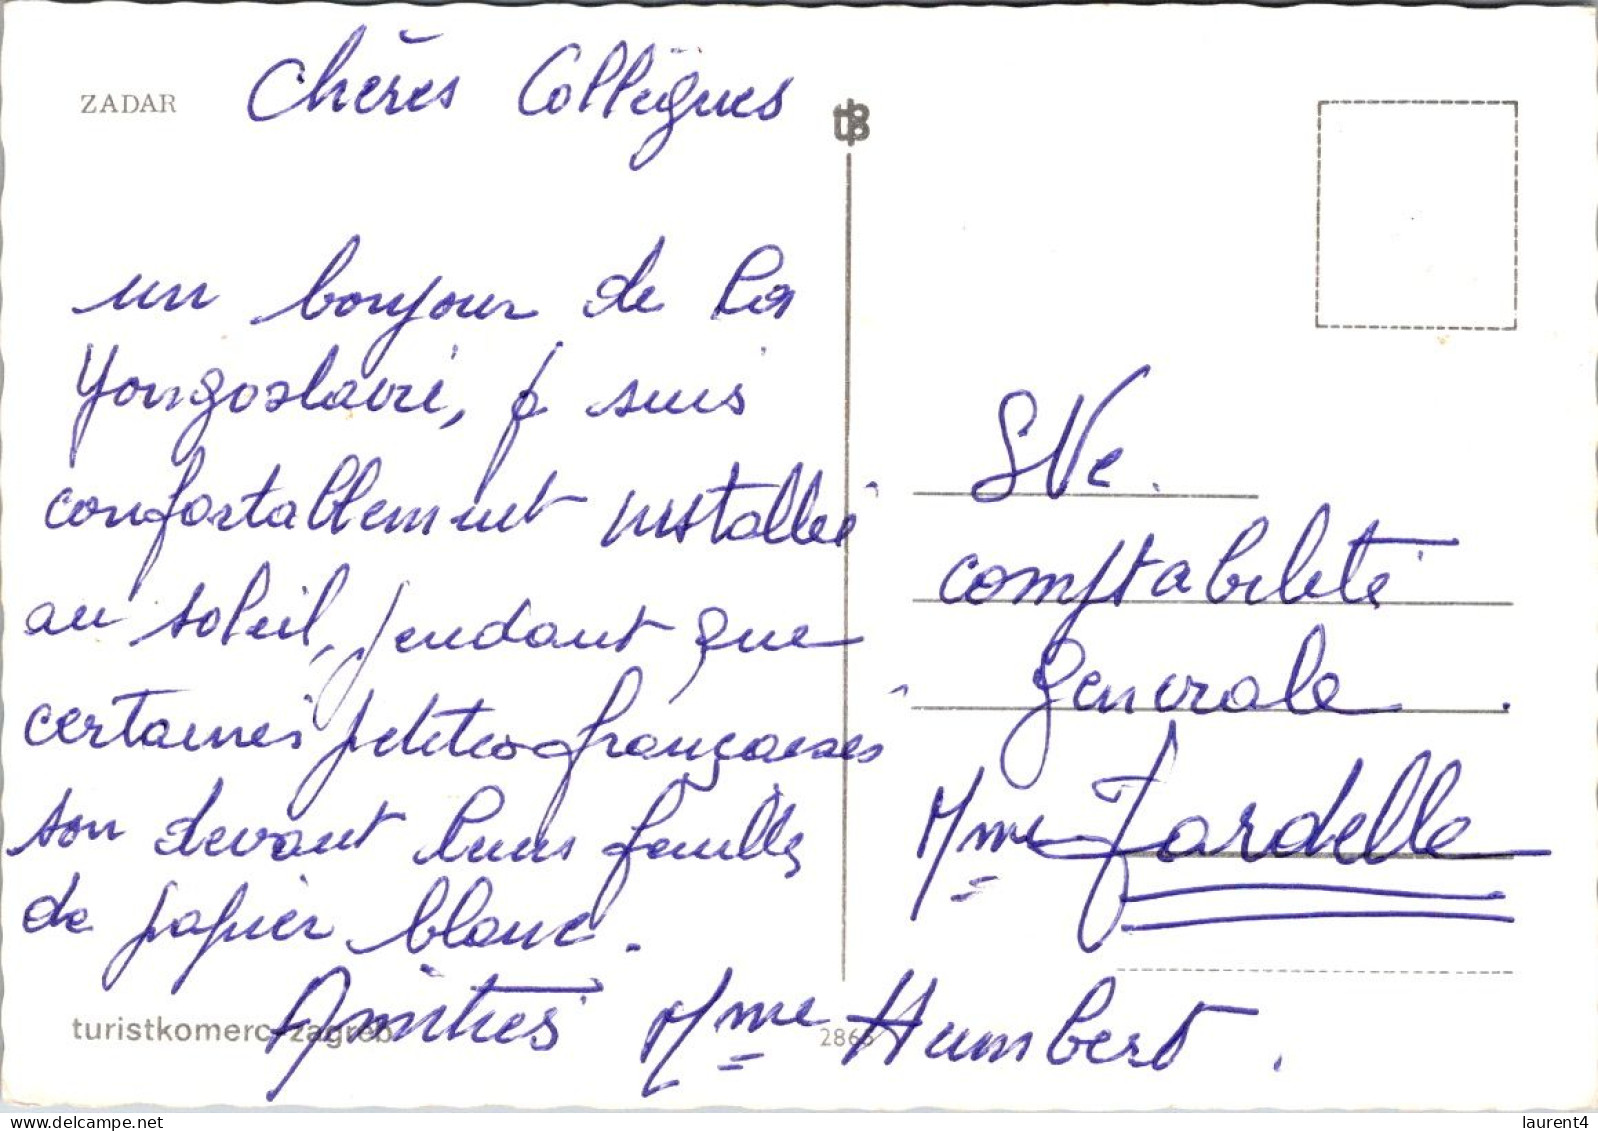 ZADAR
Chères Collègues
un bonjour de la
Yougoslavie, je suis
confortablement installée
au soleil, pendant que
certaines petites françaises
son devant leurs feuilles
de papier blanc.
Amitiés Mme Humbert.
turistkomerc, zagreb
2865
tB
SVe.
comptabilité
générale.
Mme Jardelle
www.delcampe.net
laurent4